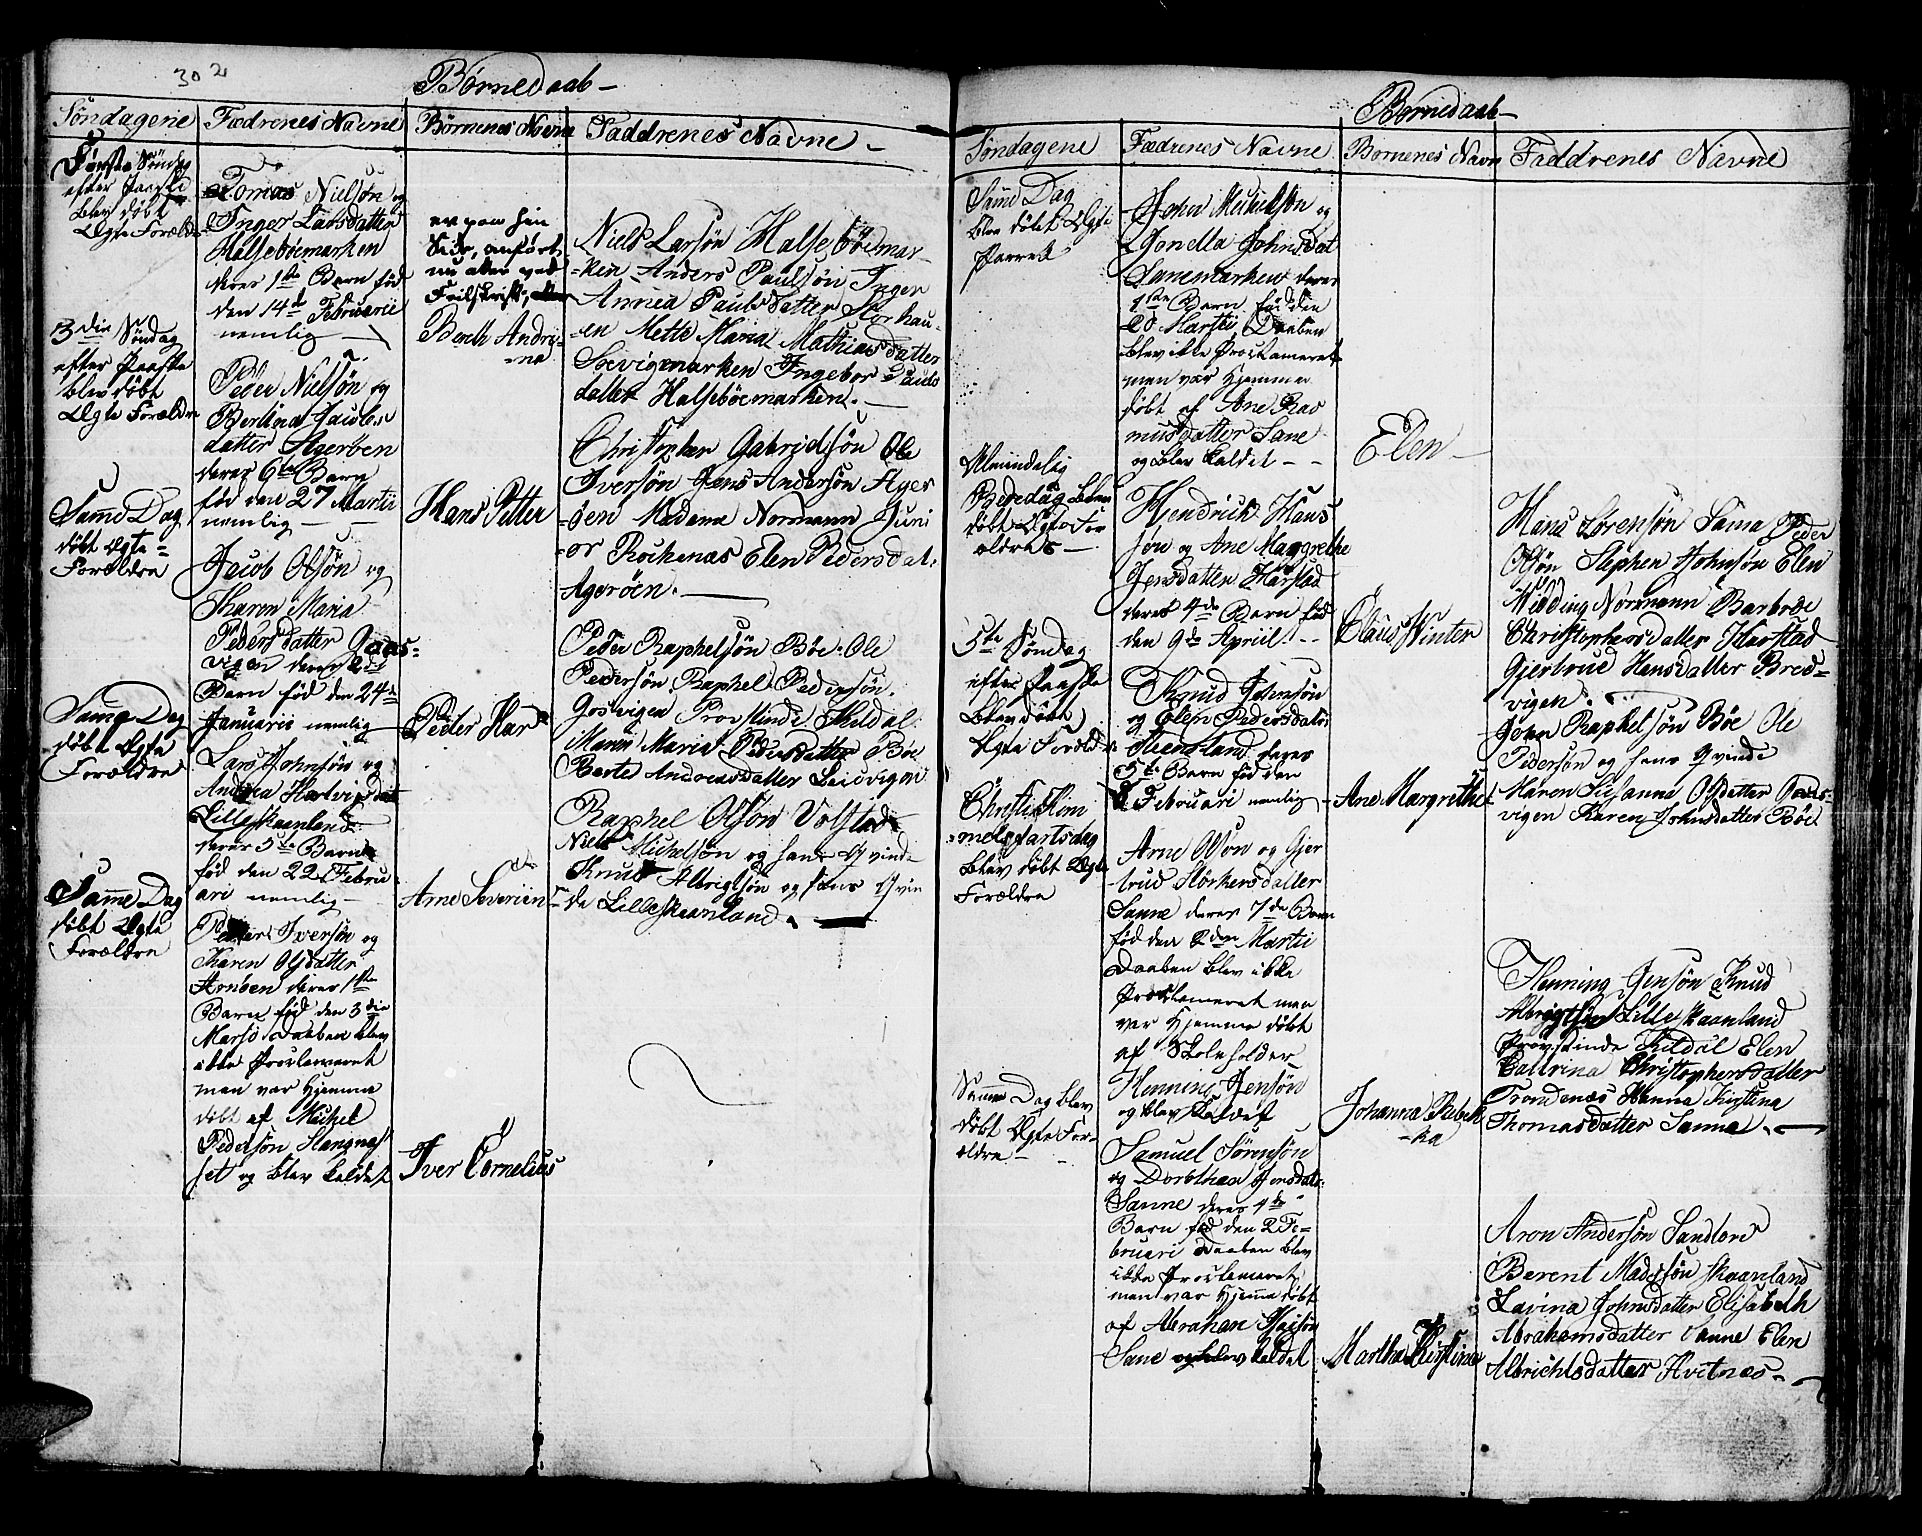 302
Børnedaab
Søndagene
Fædrenes Navne
Børnenes Navne
Faddrenes Navne
Første Søndag
efter Paaske
blev døbt
Ægte Forældre
Tomas Nielsøn og
Inger Larsdatter
Halsebøemarken
deres 1te Barn fød
den 14de Februarii
nemlig
er paa hin
Side, anført
nu atter ved
Feilskrift,
Berth Andri-
-na
Niels Larsøn Halsebøemar-
-ken Anders Paulsøn Inger
Annea Paulsdatter Storhau-
-en Mette Maria Mathiasdatter
Sørvigmarken Ingebor Pauls
datter Halsebøemarken.
3die Søndag
efter Paaske
blev døbt
Ægte Forældre
Peder Nielsøn og
Berlina Jacobs
datter Agerøen
deres 6te Barn
fød den 27 Martii
nemlig
Hans Petter
Christopher Gabrielsøn Ole
Iversøn Jens Andersøn Ager
øen Madame Normann Juni
-or Rochenæs Elen Pedersdat:
Agerøen.
Samme Dag
døbt Ægte
Forældre
Jacob Olsøn og
Karen Maria
Pedersdatter Gaas-
vigen deres 2det
Barn fød den 24de
Januarii nemlig
Peder Kar
Peder Raphelsøn Bøe Ole
Pedersøn Raphel Pedersøn
Gosvigen Provstinde Kildal
Maria Maria Pedersdatter Bøe
Berte Andreasdatter Leidvigen
Samme Dag
døbt Ægte
Forældre
Lars Johnsøn og
Andrea Hartvigsdat
Lilleskaanland
deres 5te Barn
fød den 22 Febru-
arii nemlig
Arne Severien
Raphel Olsøn Volstad
Niels Michelsøn og hans Qvinde
Knud Albrigtsøn og hans Qvin
de Lilleskaanland
Samme Dag
døbt Ægte
Forældre
Peder Iversøn og
Karen Olsdatter
deres 1ste
Barn fød den 3die
Marso Daaben blev
ikke Proclameret
men var hjemme
døbt af Michel
Pedersøn Hangnæs
set og blev kaldet
Iver Cornelius
Børnedaab
Søndagene
Fædrenes Navne
Børnenes Navn
Faddrenes Navne
Samme Dag
blev døbt Ægte
Parret
John Michelsøn og
Gonella Johnsdat
Sanemarken deres
1ste Barn fød den
20 Martii Daaben
blev ikke Proclameret
men var hjemme
døbt af Ane Ras
musdatter Sane
og blev kaldet
Elen
Almindelig
Bededag blev
døbt Ægte For
ældre
Hendrich Hans
søn og Ane Maggrethe
Jensdatter Harstad
deres 4de Barn fød
den 9de April
Claus Winter
Hans Sørensøn Sama Peder
Olsøn Stephen Johnsøn Elen
Widding Normann Barbroe
Christophersdatter Harstad
Gjertrud Hansdatter Bred-
vigen.
5te Søndag
efter Paaske
blev døbt
Ægte Forældre
Knud Johnsøn
og Elen Pedersdatr
deres
5te Barn fød den
Februari nemlig
Ane Margrethe
John Raphelsøn Bøe Ole
Pedersøn og hans Qvinde
Maren Susanne Olsdatter Gaas-
vigen Karen Johnsdatter Bøe
Christi Him
melsfartsdag
blev døbt Ægte
Forældre
Arne Olsøn og Gjer
trud Størkersdatter
Sanne deres 7de Barn
fød den 2den Martii
Daaben blev ikke
Proclameret men
var hjemme døbt
af Skoleholder
Henning Jensøn
og blev kaldet
Johanna Rebek
-ka
Henning Jensøn Knud
Albrigtsøn Lille Skaanland
Provstinde Kildal Elen
Catrina Christophersdatter
Trondenæs Hanna Kirstina
Thomasdatter Sanna
Samme Dag blev
døbt Ægte For-
ældre
Samuel Sørensøn
og Dorothea Jensdatr
Sanne deres 4de
Barn fød den 2 Fe-
bruari Daaben blev
ikke Proclameret
men var hjemme døbt
af Abraham Kaisøn
Sane og blev kaldet
Martha Kirstina
Aron Andersøn Sandtorv
Berent Madssøn Skaanland
Lavina Johnsdatter Elisabeth
Abrahamsdatter Sanne Elen
Albrichtsdatter Hvitnes